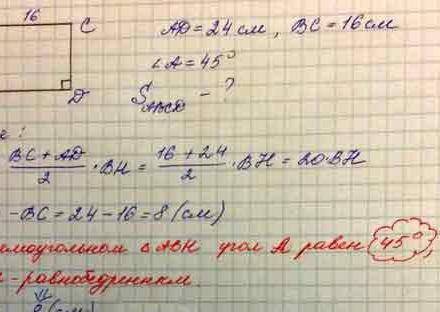 16
C
AD = 24 см, BC = 16 см
∠A = 45°
D
S ABCD - ?
BC + AD / 2 · BH = 16 + 24 / 2 · BH = 20·BH
- BC = 24 - 16 = 8 (см)
ямоугольном △ ABH угол A равен 45°,
- равнобедренным.
(см)